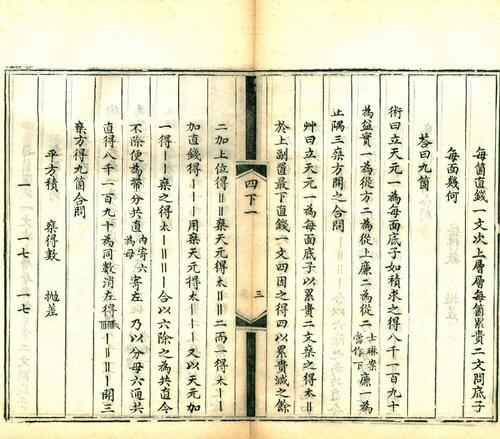 每箇直錢一文次上層層每箇累貴二文問底子
每面幾何
荅曰九箇
術曰立天元一為每面底子如積求之得八千一百九十
為益實一為從方二為從上廉二為從二士琳案當作下廉一為
正隅三乘方開之合問
艸曰立天元一為每面底子以累貴二文乘之得太〢
於上副置最下直錢一文四因之得四以累貴減之餘
二加上位得〢〢乘天元得太〢〢二而一得太〡〡
加直錢得〡〡〡用乘天元得太〡〡〡又以天元加
一得〡〡乘之得太〡〢〢〡合以六除之為共直今
不除便為帶分共直內寄六為母寄左乃以分母六通共
直得八千一百九十為同數消左得〡〢〢〡開三
乘方得九箇合問
平方積 乘得數 拋差
一 一七 一七
四下一
三